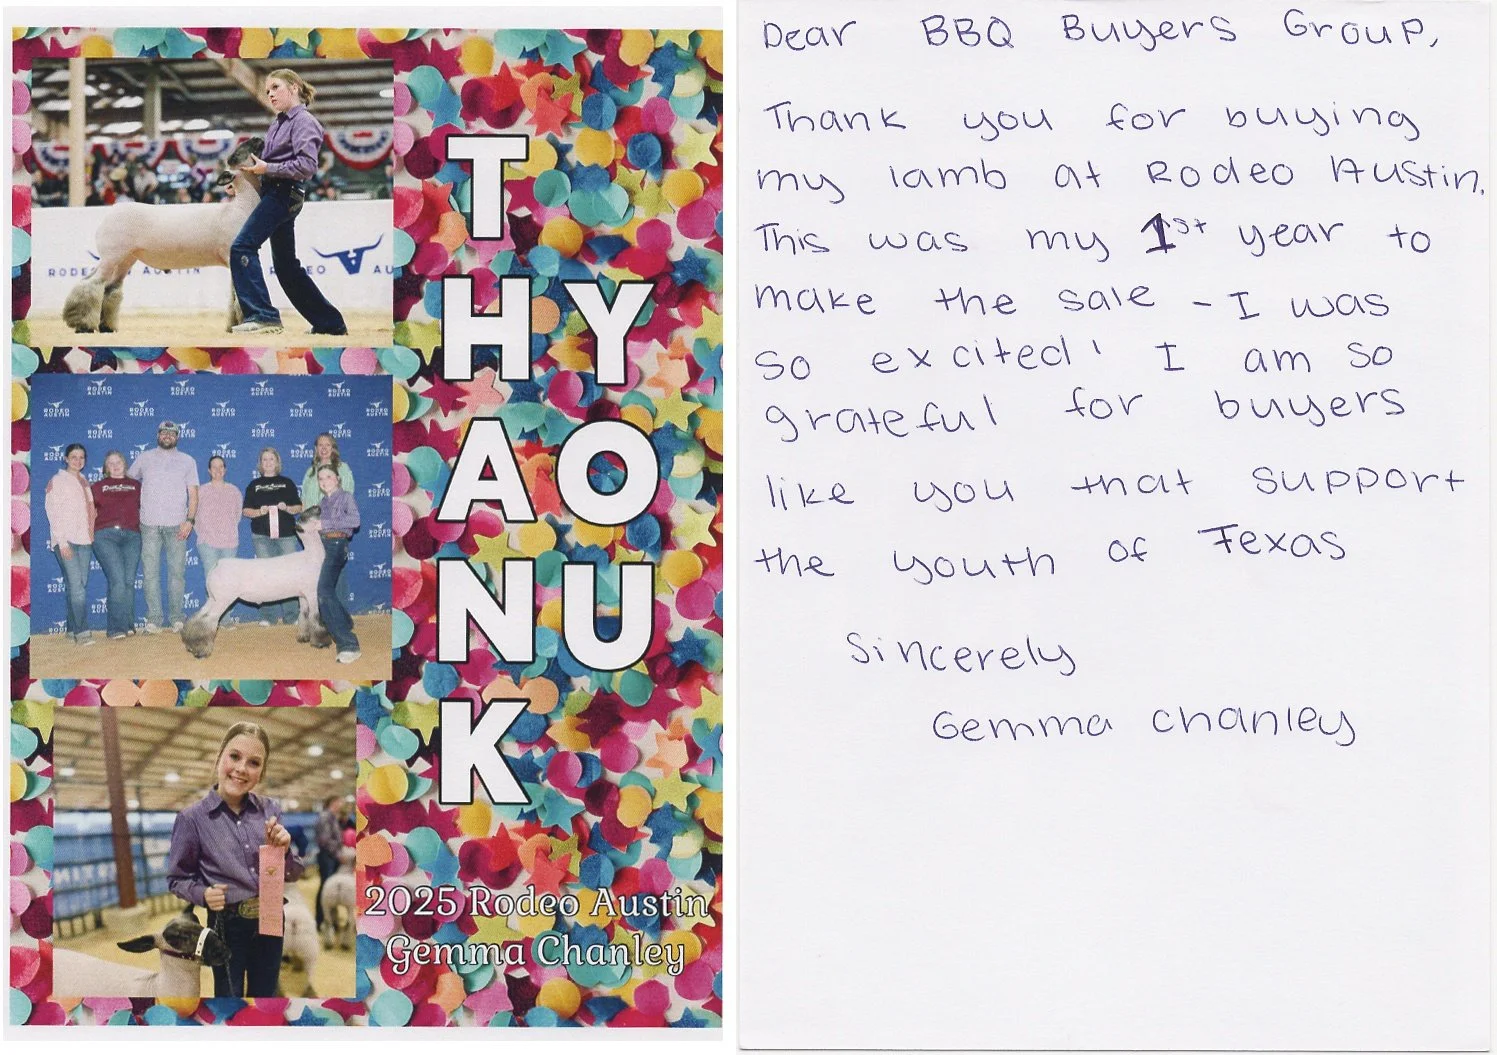 RODEO AUSTIN
RODEO AU
THANK
YOU
RODEO AUSTIN
2025 Rodeo Austin
Gemma Chanley
Dear BBQ Buyers Group,
Thank you for buying
my lamb at Rodeo Austin.
This was my 1st year to
make the sale - I was
so excited! I am so
grateful for buyers
like you that support
the youth of Texas
Sincerely
Gemma Chanley